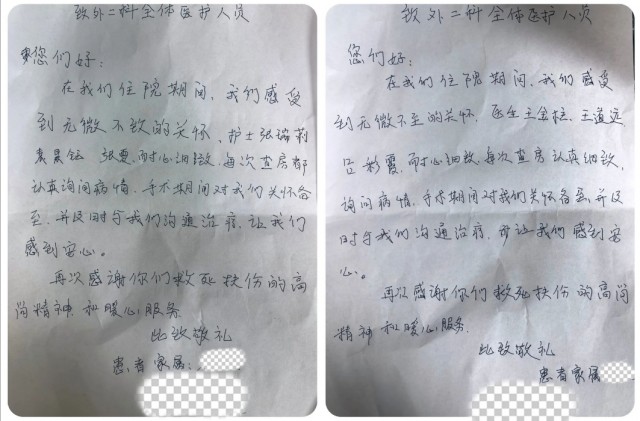 致外二科全体医护人员
您们好:
在我们住院期间,我们感受
到无微不致的关怀,护士张瑞莉
张雯,耐心细致,每次查房都
认真询问病情,手术期间对我们关怀备
至,并及时与我们沟通治疗,让我们
感到安心。
再次感谢你们救死扶伤的高
尚精神和暖心服务
此致敬礼
患者家属:
致外二科全体医护人员
您们好:
在我们住院期间,我们感受
到无微不至的关怀,医生王金柱、王道远
吕彩霞,耐心细致,每次查房认真细致,
询问病情,手术期间对我们关怀备至,并及
时与我们沟通治疗,让我们感到安
心。
再次感谢你们救死扶伤的高尚
精神和暖心服务
此致敬礼
患者家属